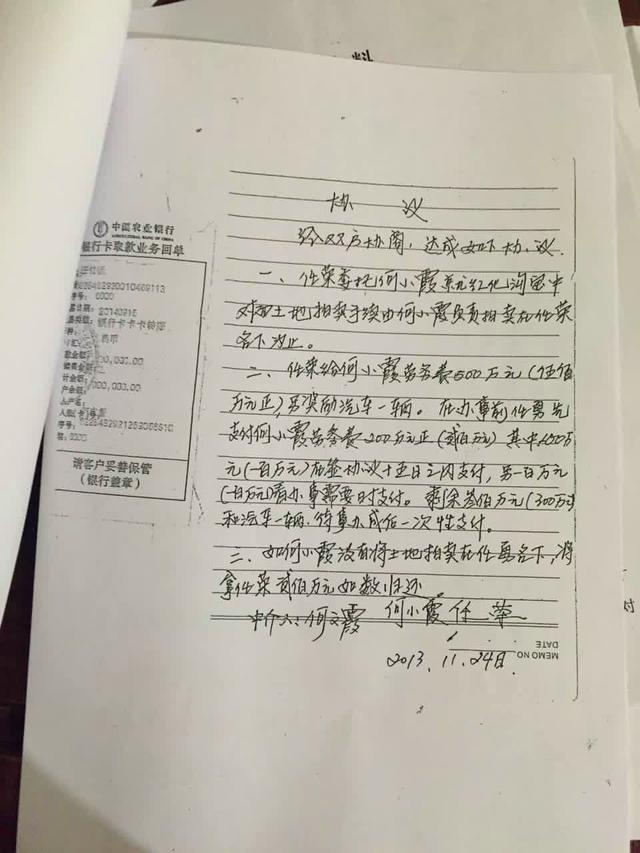 料
中国农业银行
AGRICULTURAL BANK OF CHINA
银行卡取款业务回单
序号: 0000
日期: 20140916
银行卡卡卡转账
000,000.00
000,000.00
0000
请客户妥善保管
(银行盖章)
协 议
经双方协商, 达成如下协议
一、任荣委托何小霞
土地拍卖手续由何小霞负责拍卖在任荣
名下为止。
二、任荣给何小霞劳务费500万元(伍佰
万元正), 另奖励汽车一辆。在办事前任荣先
支付何小霞劳务费200万元正(贰佰万元)其中100万
元(一百万元)在签协议十五日之内支付, 另一百万元
(一百万元)看办事需要时支付。剩余叁佰万元(300万元)
和汽车一辆, 待事办成后一次性支付。
三、如何小霞没有将土地拍卖在任荣名下, 将
拿任荣贰佰万元如数归还
中介人: 何文霞 何小霞 任荣
MEMO NO
DATE
2013.11.24日
对